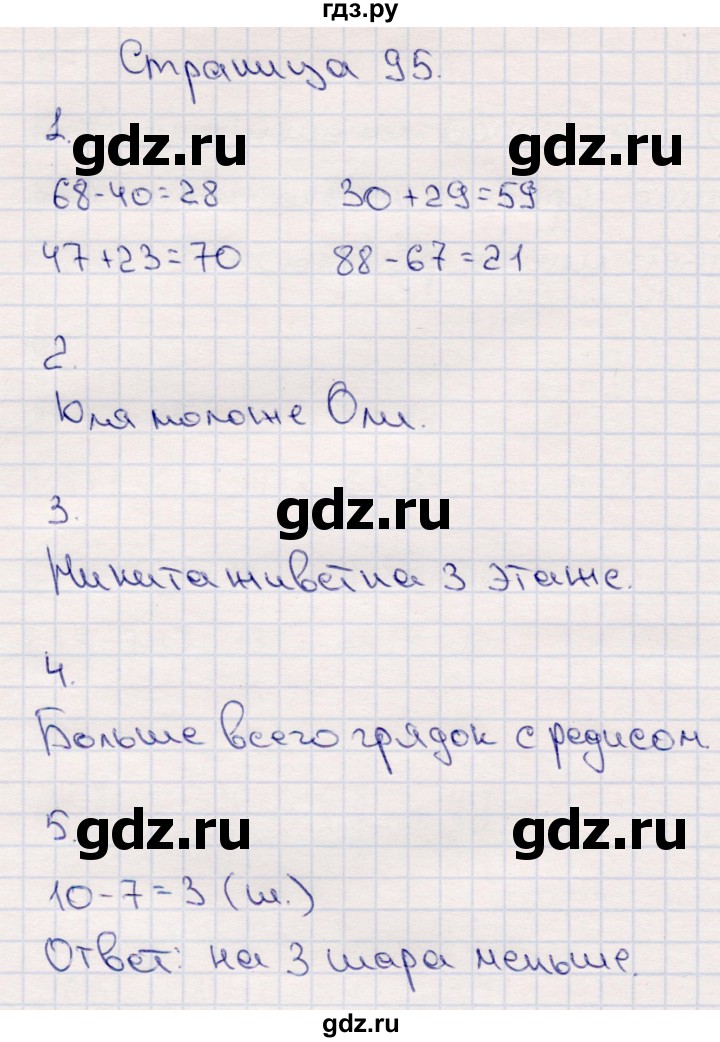 гдз.ру
Страница 95.
1.
gdz.ru gdz.ru
68-40=28 30+29=59
47+23=70 88-67=21
2.
Юля моложе Оли.
3.
gdz.ru
Никита живет на 3 этаже.
4.
Больше всего грядок с редисом.
5.
gdz.ru gdz.ru
10-7=3 (ш.)
Ответ: на 3 шара меньше.
gdz.ru